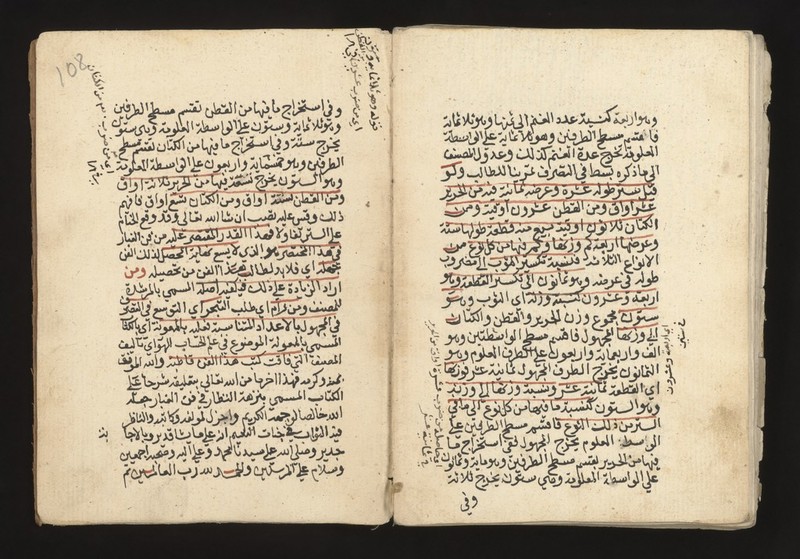 وهو اربعة كنسبة عدد الغنم الى ثمنها وهو ثلاثماية
فاقسم مسطح الطرفين وهو ثلاثماية على الواسطة
المعلومة تخرج عدة الغنم كذلك وعدول المصنف
الى ما ذكره بسط في التصرف تمرينا للطالب ولو
قيل ستر طوله عشرة وعرضه ثمانية فيه من الحرير
عشر اواق ومن القطن عشرون اوقية ومن
الكتان ثلاثون اوقية قطع منه قطعة طولها ستة
وعرضها اربعة كم وزنها وكم فيها من كل نوع من
الانواع الثلاثة فنسبة تكسير الثوب اي مضروب
طوله في عرضه وهو ثمانون الى تكسير القطعة وهو
اربعة وعشرون كنسبة وزنه اي الثوب وهو
ستون مجموع وزن الحرير والقطن والكتان
الى وزنها المجهول فاقسم مسطح الواسطتين وهو
الف واربعماية واربعون على الطرف المعلوم وهو
الثمانون يخرج الطرف المجهول ثمانية عشر وزنها
اي القطعة ثمانية عشر ونسبة وزنها الى وزنه
وهو الستون كنسبة ما فيها من كل نوع الى ما في
الستر من ذلك النوع فاقسم مسطح الطرفين على
الواسط المعلوم يخرج المجهول ففي استخراج ما
فيها من الحرير نقسم مسطح الطرفين وهو ماية وثمانون
على الواسطة المعلومة وهي ستون يخرج ثلاثة
وفي
108
وفي استخراج ما فيها من القطن نقسم مسطح الطرفين
وهو ثلاثماية وستون على الواسطة المعلومة وهي ستون
يخرج ستة وفي استخراج ما فيها من الكتان نقسم مسطح
الطرفين وهو خمسماية واربعون على الواسطة المعلومة
وهو الستون يخرج تسعة ففيها من الحرير ثلاثة اواق
ومن القطن ستة اواق ومن الكتان تسع اواق فافهم
ذلك وقس عليه تصب ان شا الله تعالى وقد وقع الختام
على الستر تفاولا فهذا القدر المقتصر عليه من فن الغبار
في هذا المختصر هو الذي لا يسع كفاية المحصل لذلك الفن
جهله اي فلا بد لطالب هذا الفن من تحصيله ومن
اراد الزيادة على ذلك فعليه باصله المسمى بالمرشدة
للمصنف ومن رام اي طلب التبحر اي التوسع في التقدير
في المجهول بالاعداد المتناسبة فعليه بالمعونة اي بالكتاب
المسمى بالمعونة الموضوع في علم الحساب الهوائي تاليف
المصنف التي فاقت كتب هذا الفن قاطبة والله الموفق
بمنه وكرمه فهذا اخر ما من الله تعالى بتعليقه شرحا على
الكتاب المسمى بنزهة النظار في فن الغبار جعله
الله خالصا لوجهه الكريم واجزل لمولفه وكاتبه والناظر
فيه الثواب في جنات النعيم انه على ما يشا قدير وبالاجابة
جدير وصلى الله على سيدنا محمد وعلى اله وصحبه اجمعين
وسلام على المرسلين والحمد لله رب العالمين تم